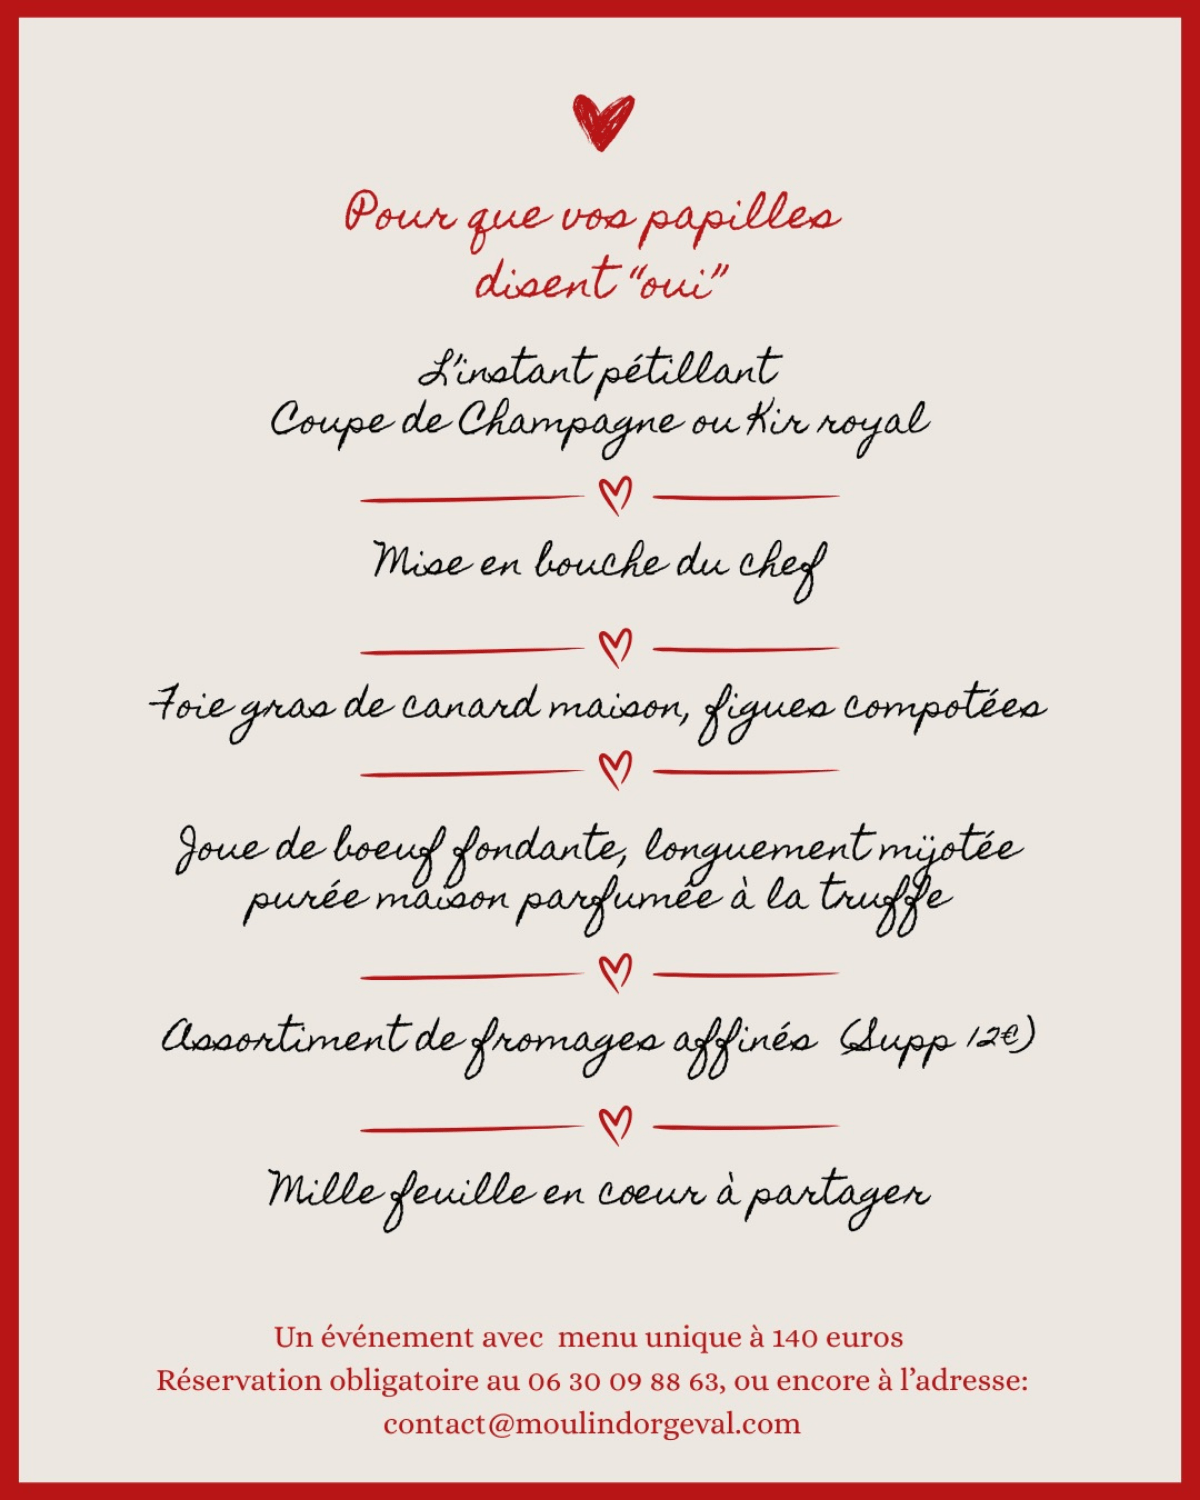 Pour que vos papilles
disent “oui”
L'instant pétillant
Coupe de Champagne ou Kir royal
Mise en bouche du chef
Foie gras de canard maison, figues compotées
Joue de boeuf fondante, longuement mijotée
purée maison parfumée à la truffe
Assortiment de fromages affinés (Supp 12€)
Mille feuille en coeur à partager
Un événement avec menu unique à 140 euros
Réservation obligatoire au 06 30 09 88 63, ou encore à l’adresse:
contact@moulindorgeval.com